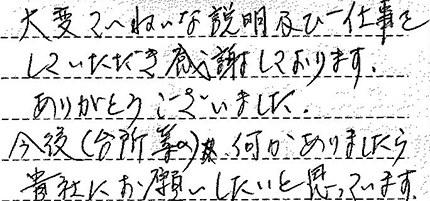 大変ていねいな説明及び仕事を
していただき感謝しております.
ありがとうございました.
今後(台所等の)何かありましたら
貴社にお願いしたいと思っています.